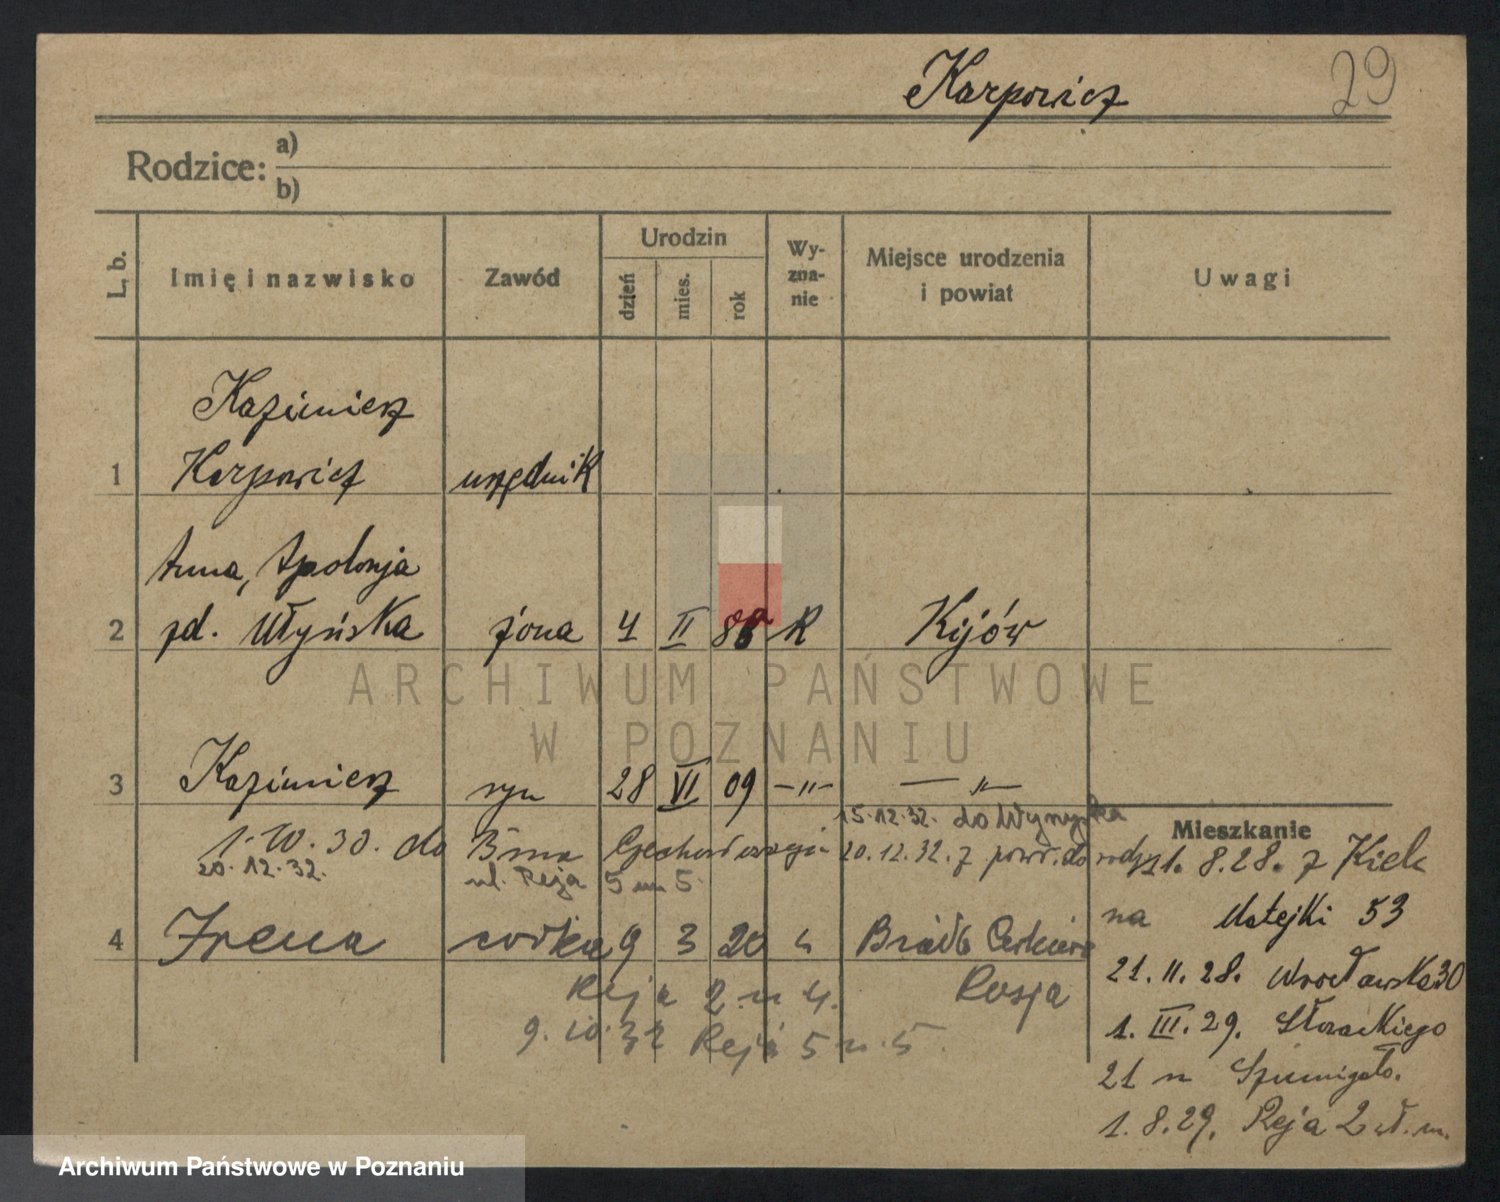 Karpowicz 29
Rodzice: a)
b)
L. b. Imię i nazwisko Zawód Urodzin dzień mies. rok Wy-zna-nie Miejsce urodzenia i powiat Uwagi
Kazimierz
1 Karpowicz urzędnik
Anna, Apolonja
2 zd. Włyńska żona 4 II 88 R Kijów
ARCHIWUM PAŃSTWOWE
W POZNANIU
3 Kazimierz syn 28 VI 09 -"- -"-
15.12.32. do
Mieszkanie
1.10.30. do Brna Czechosłowacja 20.12.32. z powr. do
20.12.32. ul. Reja 5 m 5.
1. 8.28. z Kielc
na Matejki 53
4 Irena córka 9 3 20
21.11.28. Wrocławska 30
Reja 2 m 4. Rosja
9.10.32 Reja 5 m. 5.
1. III. 29. Słowackiego
21 n
1.8.29. Reja 2
Archiwum Państwowe w Poznaniu